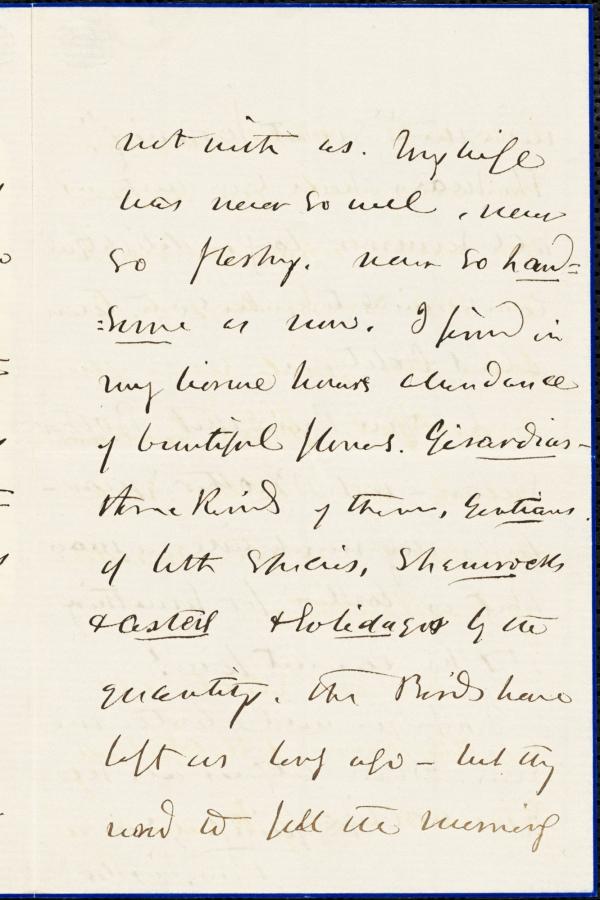 not with us. My wife
was never so well, never
so fleshy. never so hand=
=some as now. I find in
my leisure hours abundance
of beautiful flowers. Girardias -
three kinds of them, Gentians.
of both species, Shamrocks
& asters & Solidagos by the
quantity. The Birds have
left us long ago - but they
used to fill the morning